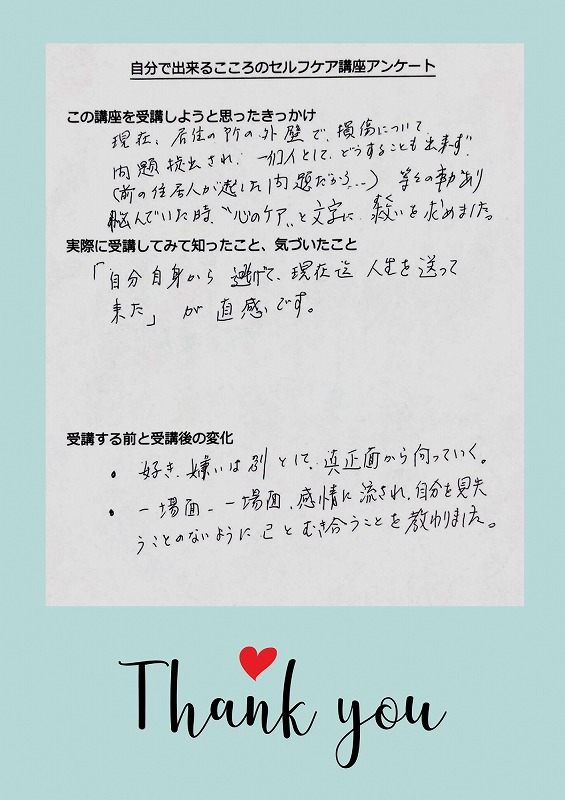 自分で出来るこころのセルフケア講座アンケート
この講座を受講しようと思ったきっかけ
現在、居住の所の外壁で、損傷について
問題提出され、一個人として、どうすることも出来ず
(前の住居人が起した問題だから…) 等々の事あり
悩んでいた時、"心のケア"と文字に 救いを求めました。
実際に受講してみて知ったこと、気づいたこと
「自分自身から 逃げて、現在迄 人生を送って
来た」 が 直感です。
受講する前と受講後の変化
• 好き、嫌いは別として、真正面から向っていく。
• 一場面、一場面、感情に流され、自分を見失
うことのないように 己と むき合うことを 教わりました。
Thank you